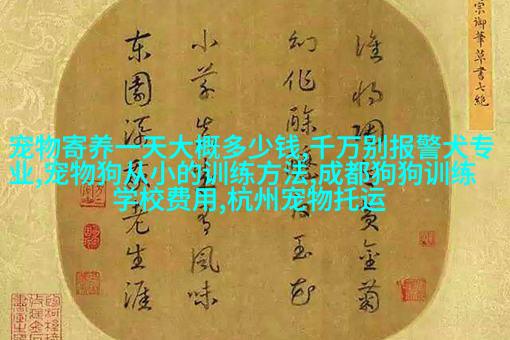 宗御筆草書七絶
誰將陶黄金菊
幻作酴白玉花
小草真有風味
東園添我老生涯
宠物寄养一天大概多少钱,千万别报警犬专
业,宠物狗从小的训练方法,成都狗狗训练
学校费用,杭州宠物托运